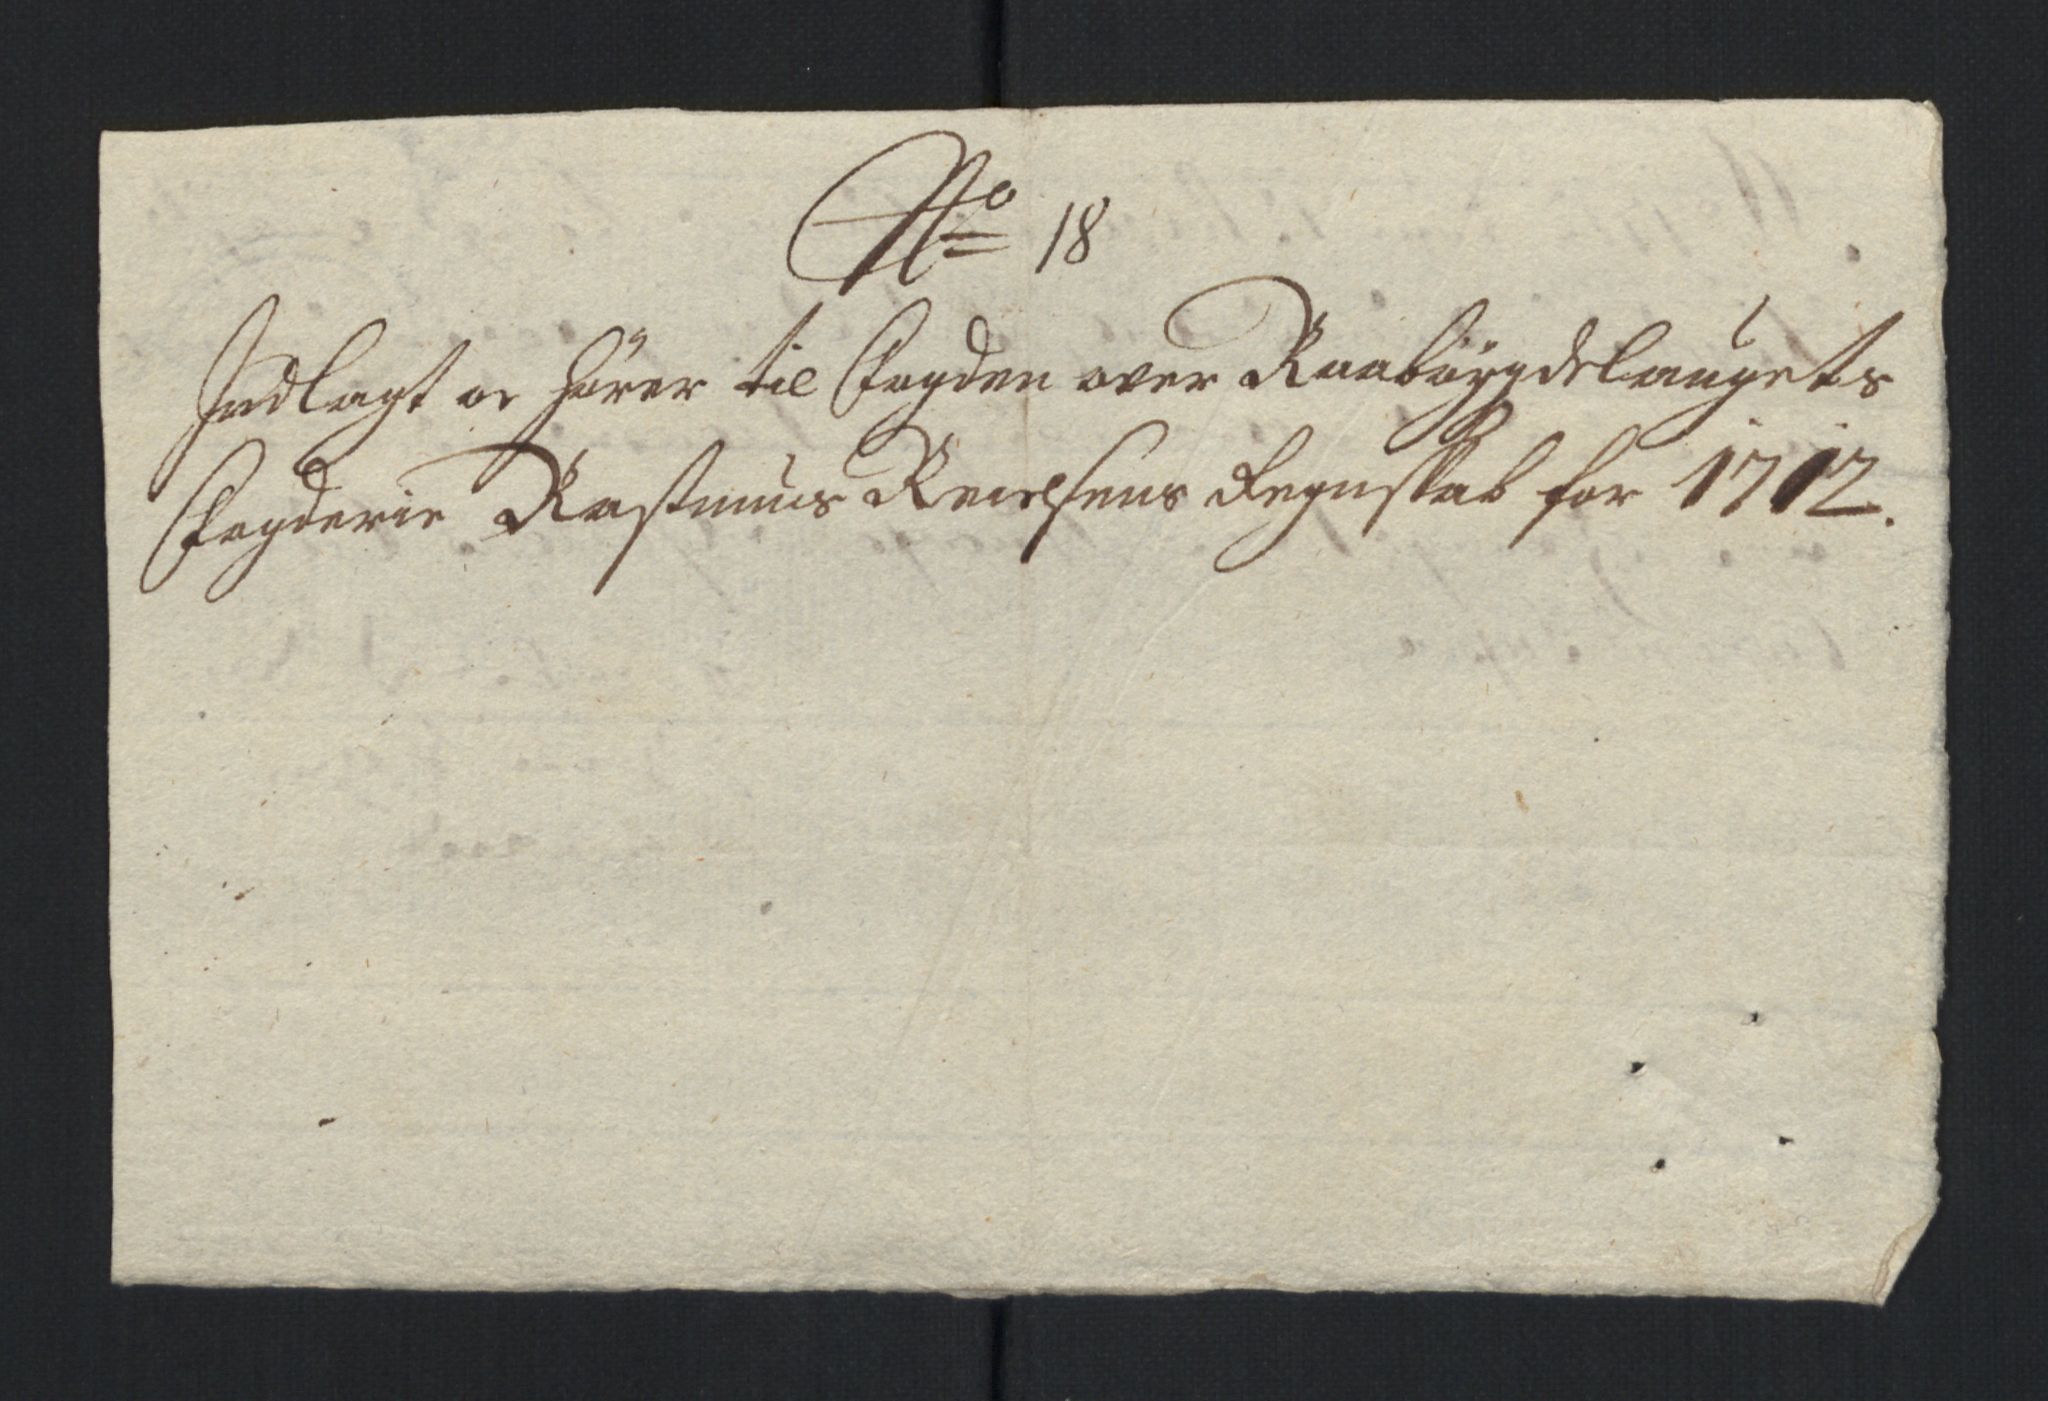 No 18
Indlagt oc hører til Fogden over Raabøygdelaugets
Fogderie Rasmus Reielsens Regnskab for 1712.